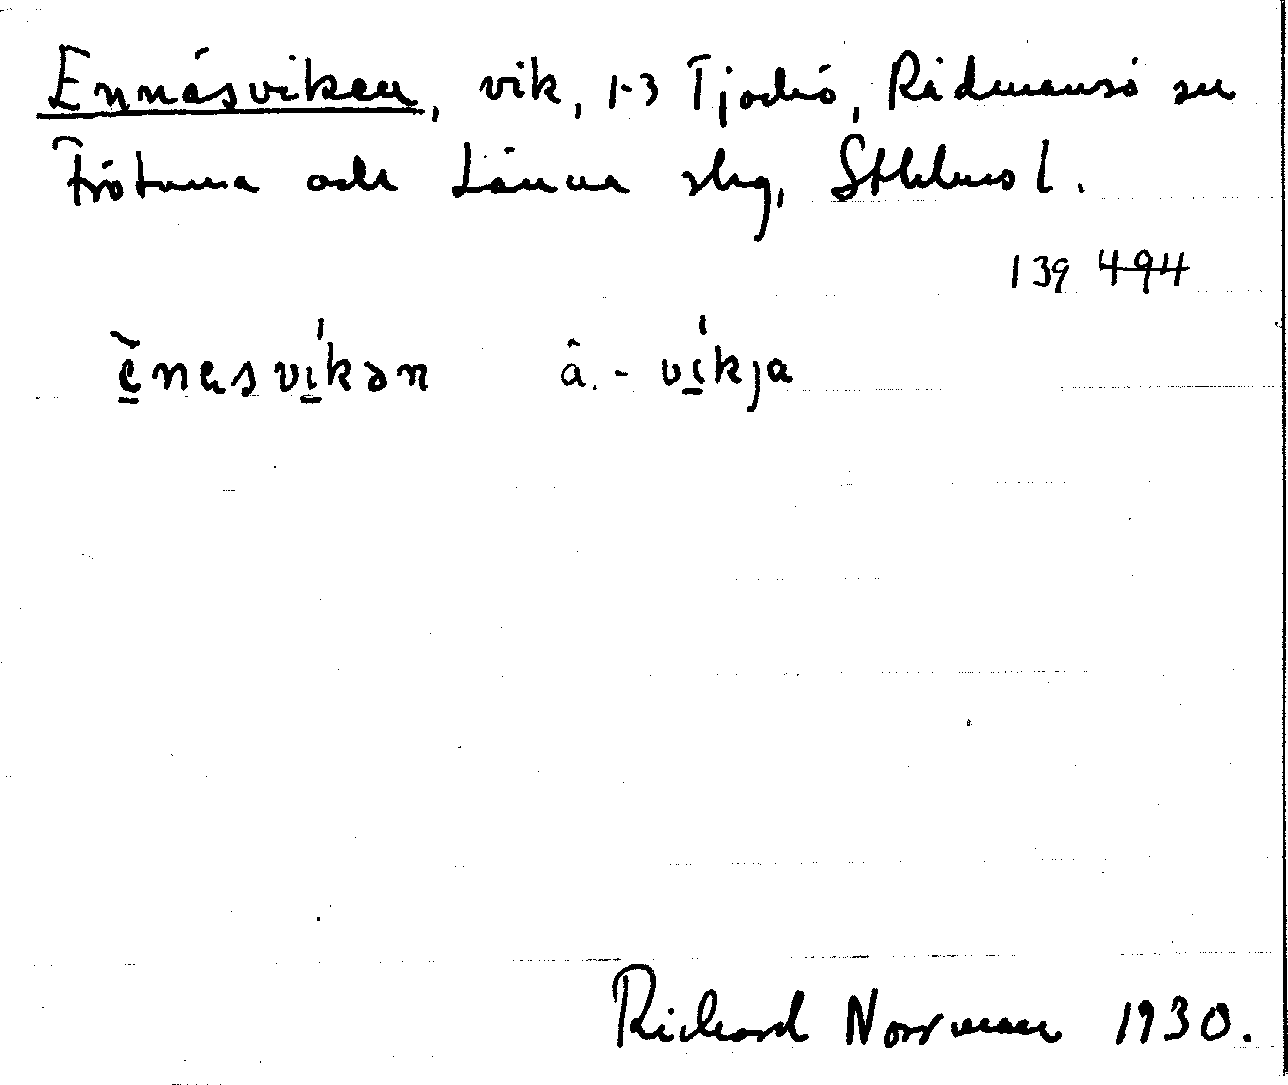 Ennäsviken, vik, 1-3 Tjockö, Rådmansö sn
Frötuna och Länna skg, Sthlms l.
139 494
ènasvíkən â. - víkja
Richard Norrman 1930.